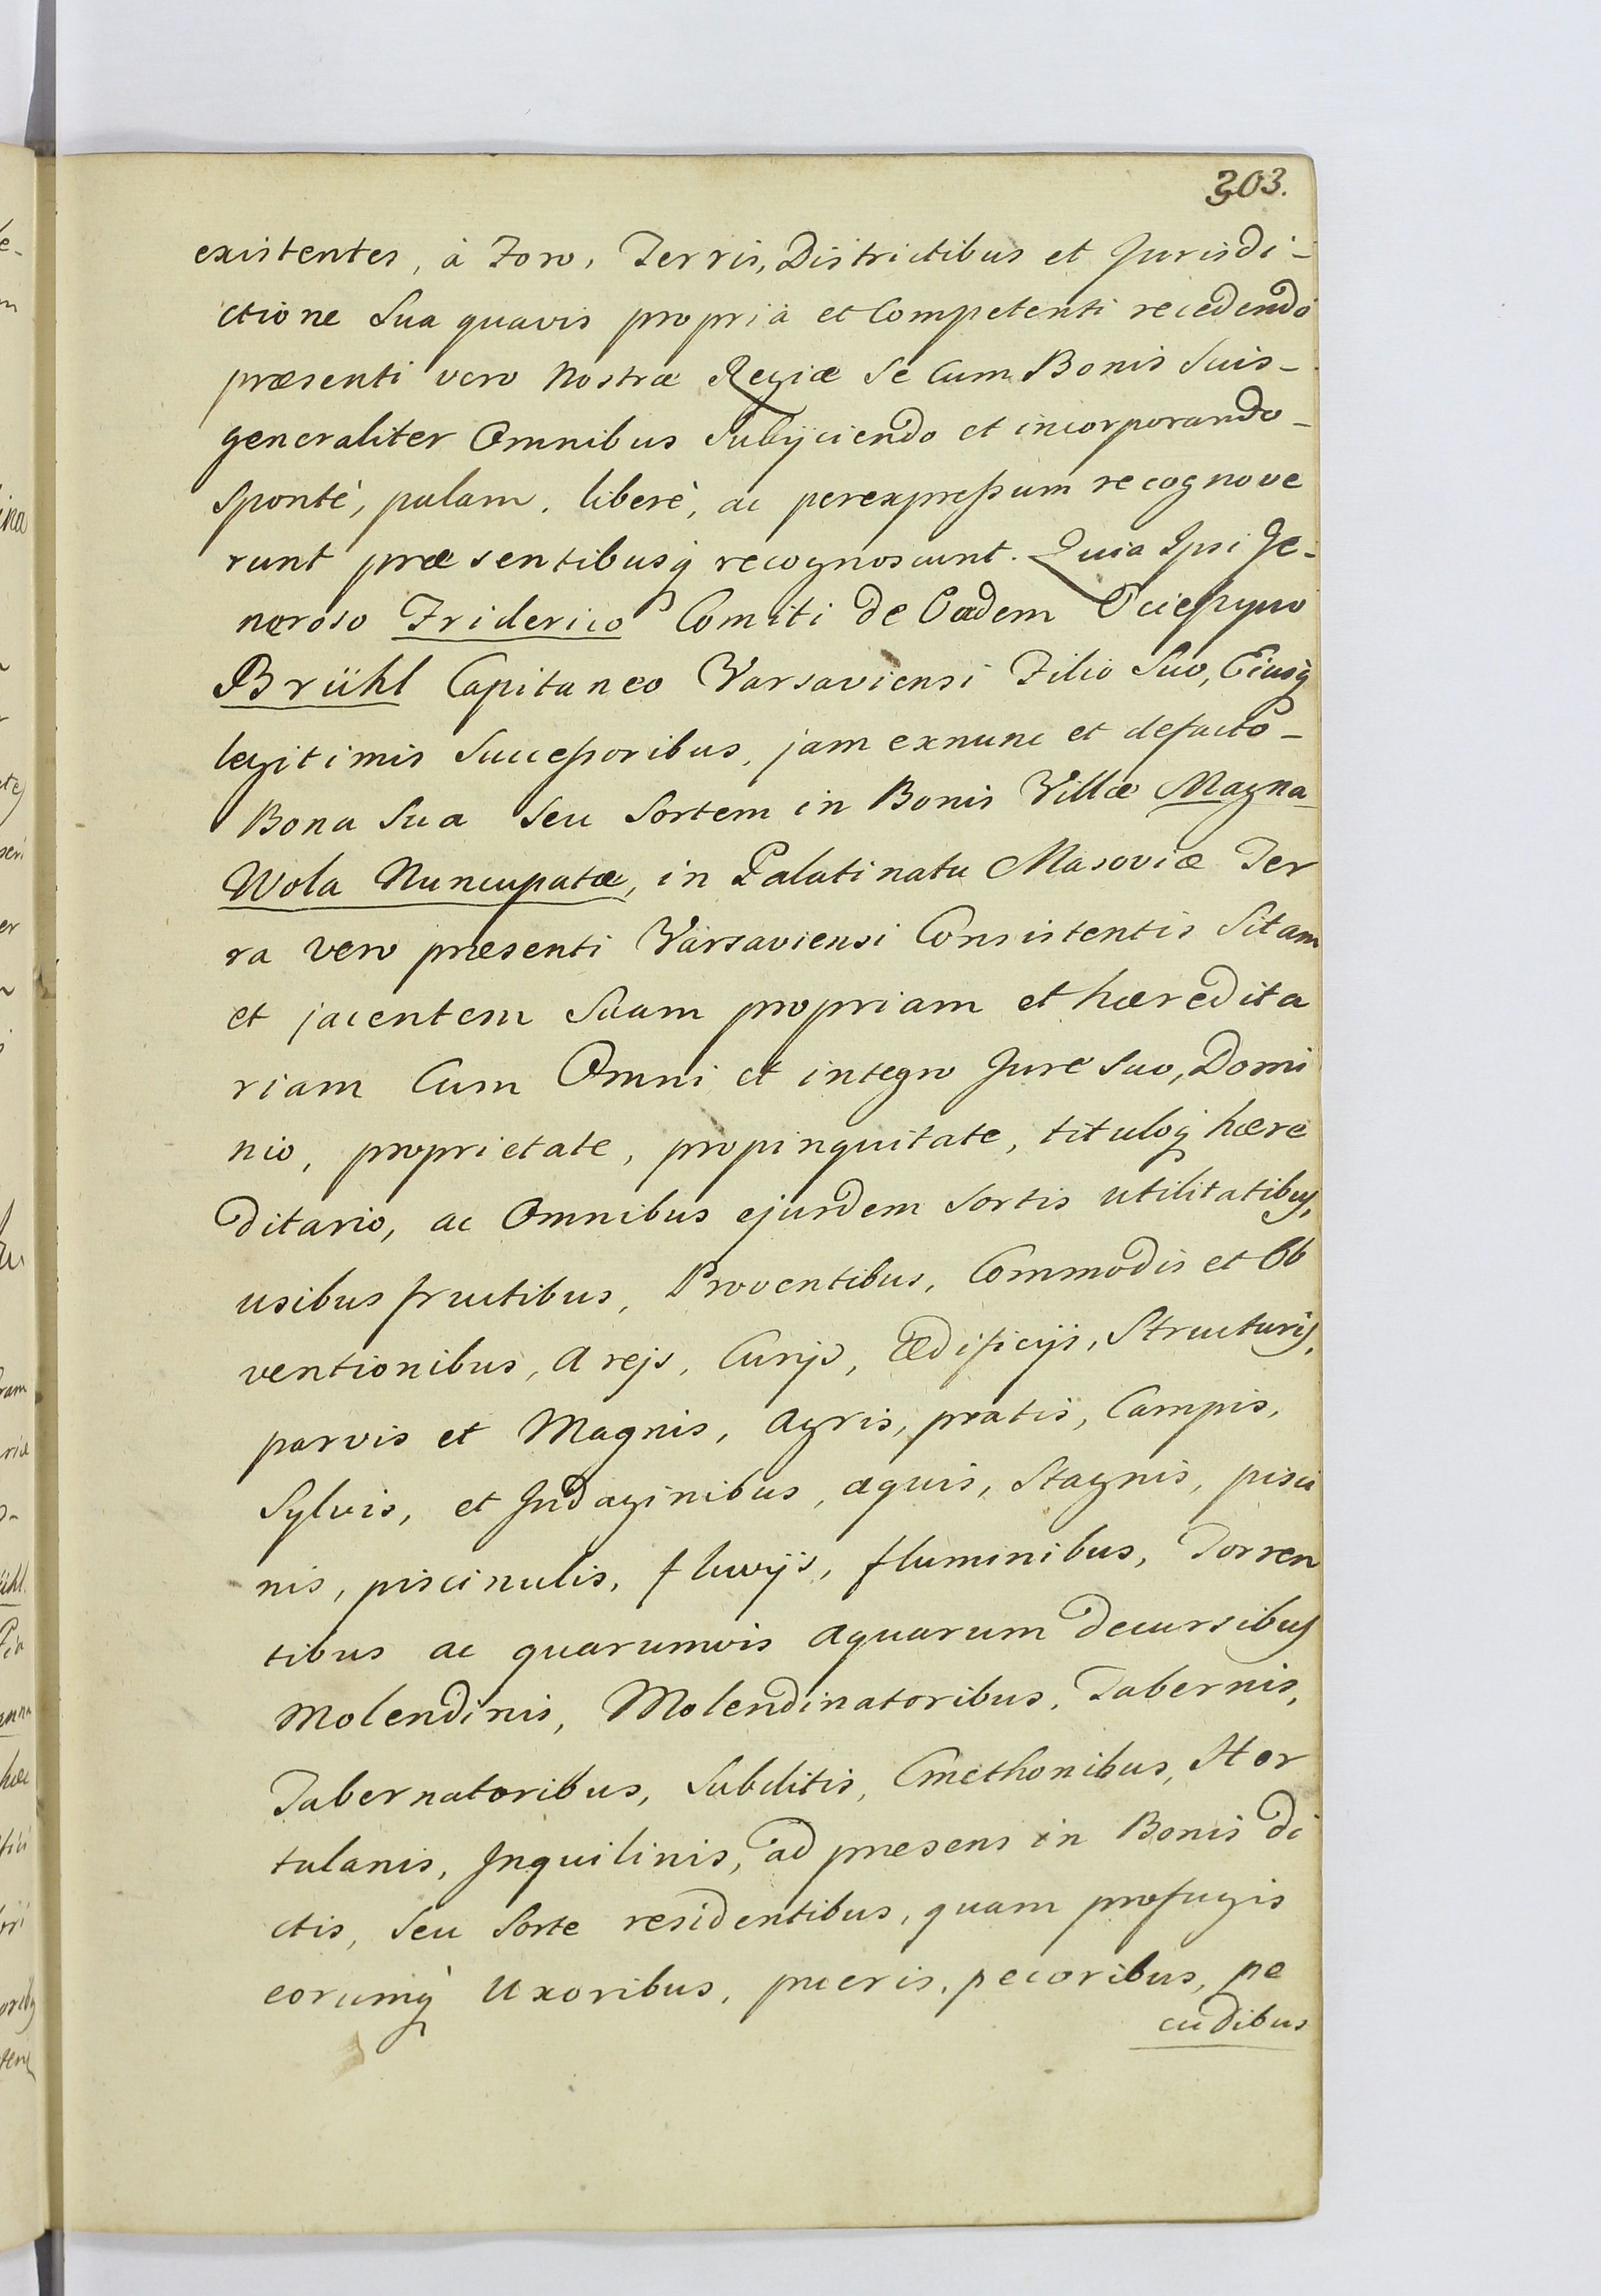 303.
existentes, à Foro, Terris, Districtibus et Jurisdi-
ctione Sua quavis propria et Competenti recedendo
præsenti vero Nostræ Regiæ Se Cum Bonis Suis-
generaliter Omnibus Subijciendo et incorporando-
Spontè, palam, liberè, ac perexpreſsum recognove
runt præsentibusq recognoscunt. Quia Ipsi Ge-
neroso Friderico Comiti de Eadem Ocieſzyno
Brühl Capitaneo Varsaviensi Filio Suo, Eiusq
legitimis Succeſsoribus, jam exnunc et defacto-
Bona Sua Seu Sortem in Bonis Villæ Magna
Wola Nuncupatæ, in Palatinatu Masoviæ Ter
ra vero præsenti Varsaviensi Consistentis Sitam
et jacentem Suam propriam et hæredita
riam Cum Omni et integro Jure Suo, Domi
nio, proprietate, propinquitate, tituloq hære
ditario, ac Omnibus ejusdem Sortis utilitatibus,
usibus fructibus, Proventibus, Commodis et Ob
ventionibus, Arejs, Curijs, Ædificijs, Structuris,
parvis et Magnis, Agris, pratis, Campis,
Sylvis, et Indaginibus, aquis, Stagnis, pisci
nis, piscinulis, fluvijs, fluminibus, Torren
tibus ac quarumvis aquarum decursibus
Molendinis, Molendinatoribus, Tabernis,
Tabernatoribus, Subditis, Cmethonibus, Hor
tulanis, Inquilinis, ad præsens in Bonis di
ctis, Seu Sorte residentibus, quam profugis
eorumq Uxoribus, pueris, pecoribus, pe
cudibus